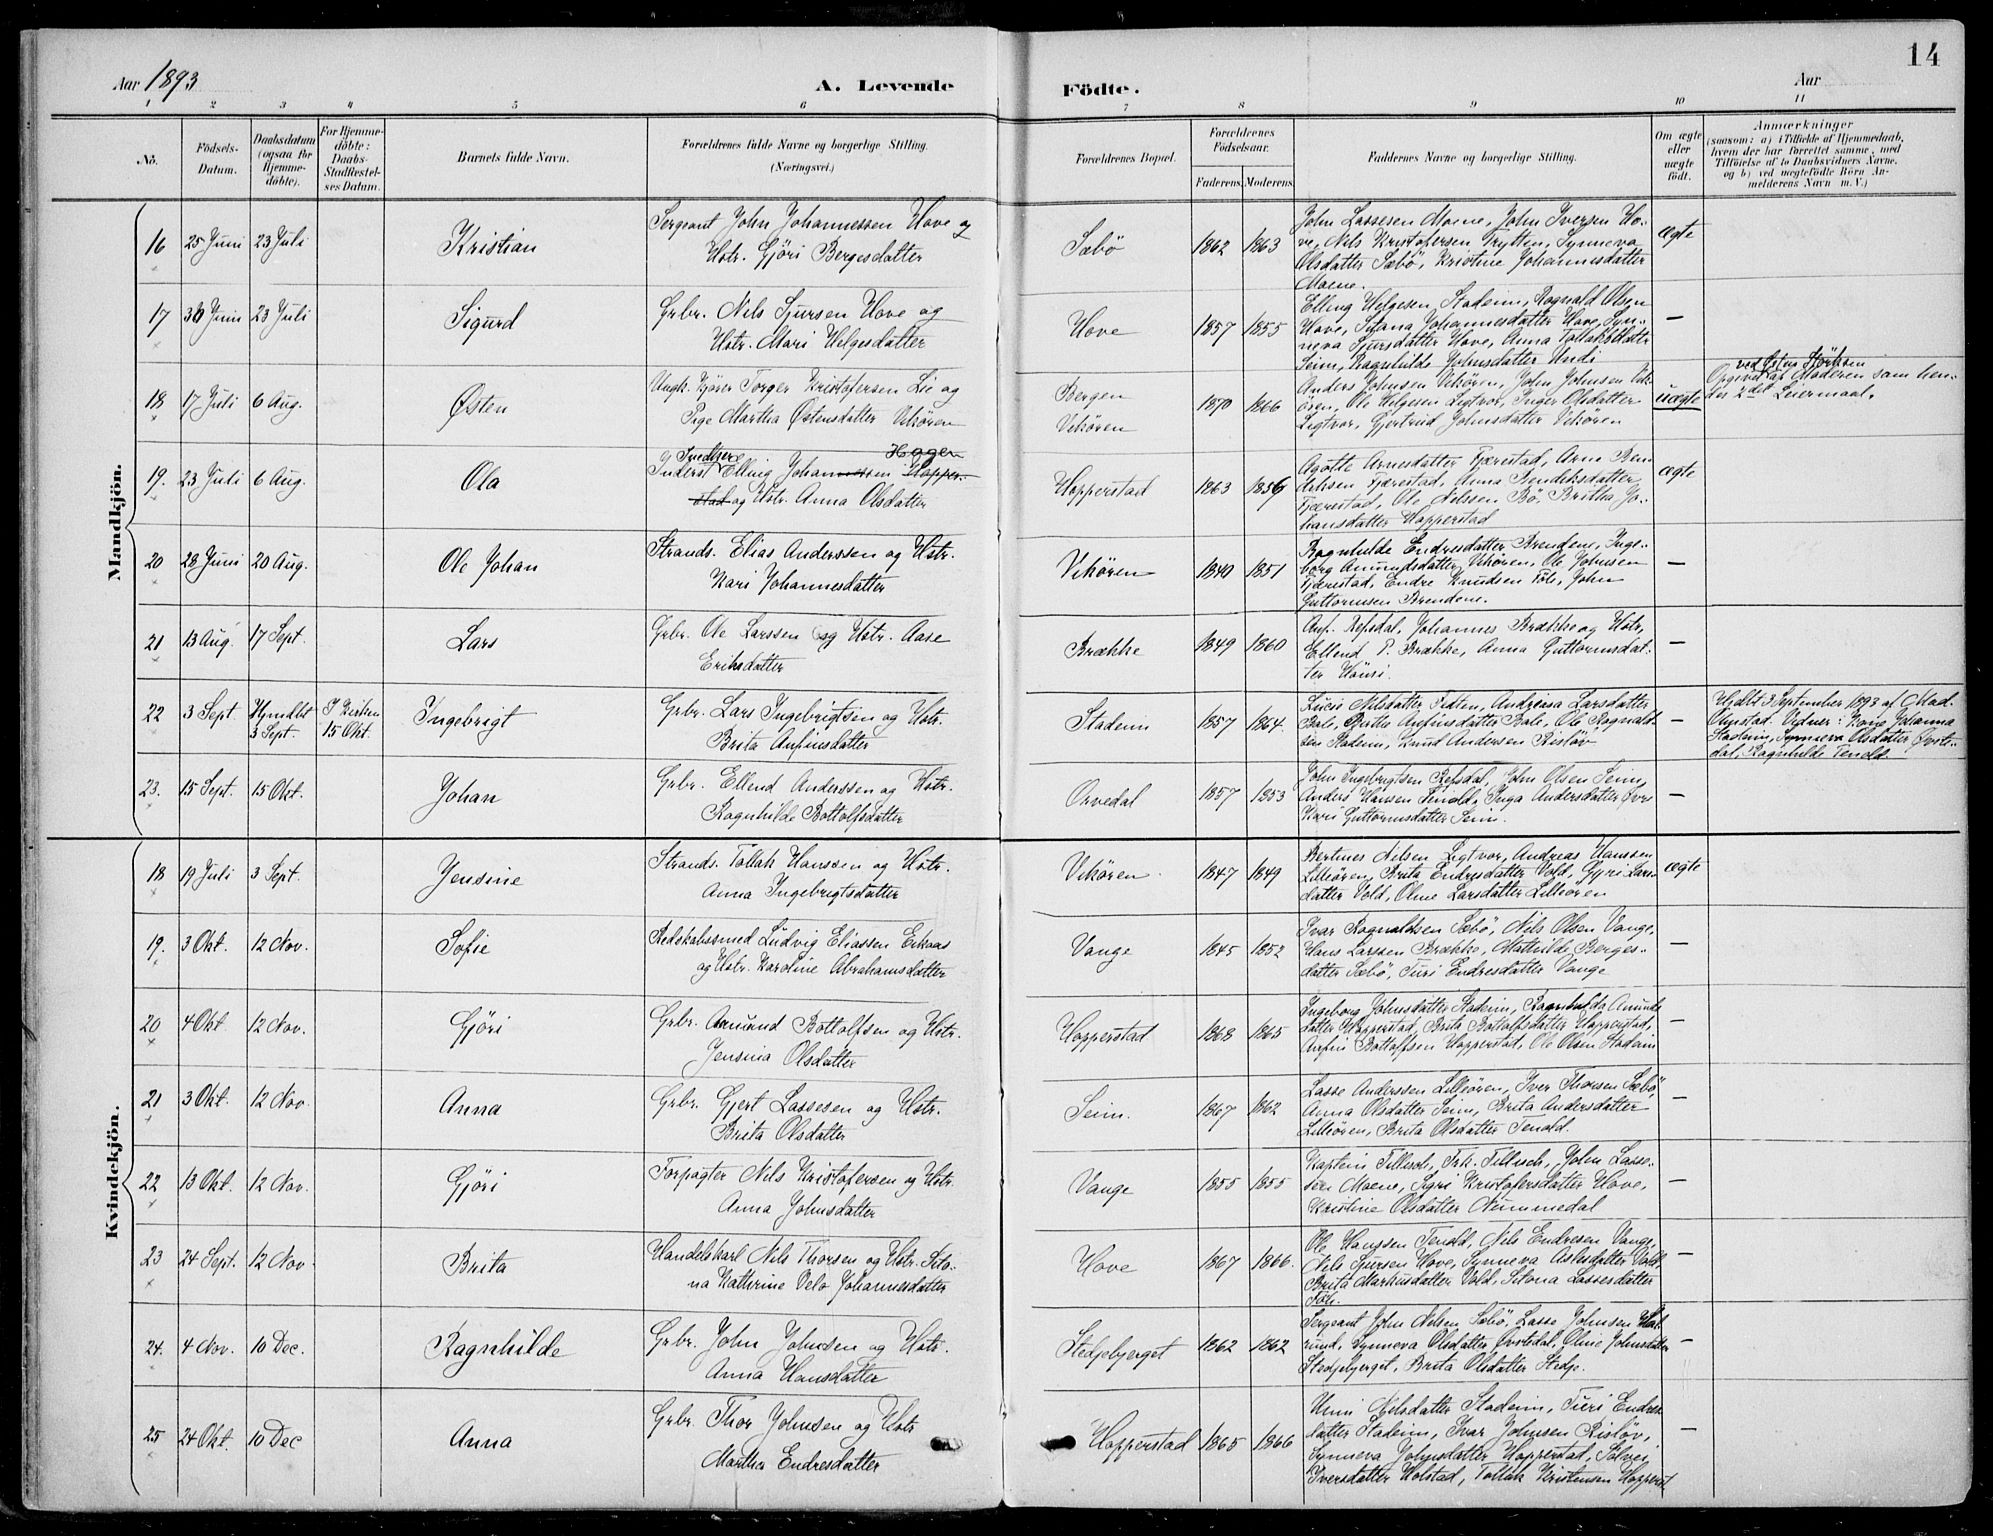 14
Aar 1893
A. Levende
Födte.
Aar
1 2 3 4 5 6 7 8 9 10 11
No.
Födsels-
Datum.
Daabsdatum
(ogsaa for
Hjemme-
döbte).
For Hjemme-
döbte:
Daabs-
Stadfæstel-
ses Datum.
Barnets fulde Navn.
Forældrenes fulde Navne og borgerlige Stilling.
(Næringsvei.)
Forældrenes Bopæl.
Forældrenes
Födselsaar.
Faderens. Moderens.
Faddernes Navne og borgerlige Stilling.
Om ægte
eller
uægte
født.
Anmærkninger
(saasom: a) i Tilfælde af Hjemmedaab,
hvem der har forrettet samme, med
Tilföielse af to Daabsvidners Navne,
og b) ved uægtefödte Börn An-
melderens Navn m. V.)
Mandkjön.
16 25 Juni 23 Juli Kristian
Sergeant John Johannessen Hove og
Hstr. Gjöri Bergesdatter
Sæbö 1862 1863
John Lassesen Moene, John Iversen Ho-
ve, Nils Kristofersen Trytten, Synneva
Olsdatter Sæbö, Kristine Johannesdatter
Moene.
ægte
17 30 Juni 23 Juli Sigurd
Grbr. Nils Sjursen Hove og
Hstr. Mari Helgesdatter
Hove 1857 1855
Elling Helgesen Stadeim, Ragnald Olsen
Hove, Sitana Johannesdatter Hove, Syn-
neva Sjursdatter Hove, Anna Tollaksdatter
Seim, Ragnhilde Johnsdatter Undi
—
18 17 Juli 6 Aug. Østen
Ungk. Kjører Torger Kristofersen Lie og
Pige Martha Østensdatter Vikören
Bergen
Vikören
1870 1866
Anders Johnsen Vikören, John Johnsen Vik-
ören, Ole Helgesen Ligtvor, Inger Olsdatter
Ligtvor, Gjertrud Johnsdatter Vikören
uægte
ved Østen Björksen
Opgivet af Moderen som hen-
des 2det Leiermaal.
19. 23 Juli 6 Aug. Ola
g Snedker Haagen
Inderst Elling Johannessen Hopper-
stad og Hstr. Anna Olsdatter
Hopperstad 1863 1856
Agotte Arnesdatter Fjærestad, Arne Ben-
diksen Fjærestad, Anna Bendiksdatter
Fjærestad, Ole Nilssen Bö, Britha Jo-
hansdatter Hopperstad
ægte
20 28 Juni 20 Aug. Ole Johan
Strands. Elias Anderssen og Hstr.
Kari Johannesdatter
Vikören 1840 1851
Ragnhilde Endresdatter Brendene, Inge-
borg Amundsdatter Vikören, Ole Johnsen
Fjærestad, Endre Knudsen Föli, John
Guttormsen Brendene.
—
21 13 Aug. 17 Sept. Lars
Grbr. Ole Larssen og Hstr. Aase
Eriksdatter
Brække 1849 1860
Anf. Refsdal, Johannes Brække og Hstr,
Ellend P. Brække, Anna Guttormsdat-
ter Hönsi.
—
22 3 Sept. Hjmdbt
3 Sept.
I Kirken
15 Okt.
Ingebrigt
Grbr. Lars Ingebrigtsen og Hstr.
Brita Anfinsdatter
Stadeim 1857 1864.
Lucie Nilsdatter Feten, Andrina Larsdatter
Bale, Brithe Anfinsdatter Bale, Ole Ragnald-
sen Stadeim, Knud Andersen Rislöv
—
Hjdbt 3 September 1893 af Mad.
Ölnstad. Vidner: Kone Johanna
Stadeim, Synneva Olsdatter Övste-
dal, Ragnhilde Tenold.
23. 15 Sept. 15 Okt. Johan
Grbr. Ellend Anderssen og Hstr.
Ragnhilde Bottolfsdatter
Orvedal 1857 1853
John Ingebrigtsen Refsdal, John Olsen Seim,
Anders Hansen Tenold, Inga Andersdatter Övri
Kari Guttormsdatter Seim.
—
Kvindekjön.
18 19 Juli 3 Sept. Jensine
Strands. Tollak Hanssen og Hstr.
Anna Ingebrigtsdatter
Vikören 1847 1849
Bertines Nilsen Ligtvor, Andreas Hanssen
Lilleören, Brita Endresdatter Vold, Gjöri Lars-
datter Vold, Oline Larsdatter Lilleören
ægte
19. 3 Okt. 12 Nov. Sofie
Redskabssmed Ludvig Eliassen Erkaas
og Hstr. Karoline Abrahamsdatter
Vange 1845 1852
Ivar Ragnaldsen Sæbö, Nils Olsen Vange,
Hans Larssen Brække, Mathilde Berges-
datter Sæbö, Turi Endresdatter Vange
—
20 4 Okt. 12 Nov. Gjöri
Grbr. Amund Bottolfsen og Hstr.
Jensina Olsdatter
Hopperstad 1868 1865
Ingeborg Johnsdatter Stadeim, Ragnhilda Amunds-
datter Hopperstad, Brita Bottolfsdatter Hopperstad,
Anfin Bottolfsen Hopperstad, Ole Olsen Stadeim
—
21 3 Okt. 12 Nov. Anna
Grbr. Gjert Lassesen og Hstr.
Brita Olsdatter
Seim. 1867 1862
Lasse Anderssen Lilleören, Iver Thorsen Sæbö,
Anna Olsdatter Seim, Brita Andersdatter
Lilleören, Brita Olsdatter Tenold.
—
22 13 Okt. 12 Nov. Gjöri
Forpagter Nils Kristofersen og Hstr.
Anna Johnsdatter
Vange 1855 1855
Kaptein Tillisch, Frk. Tillisch, John Lasse-
sen Moene, Sigri Kristofersdatter Hove,
Kristine Olsdatter Nummedal
—
23 24 Sept. 12 Nov. Brita
Handelskarl Nils Thorsen og Hstr. Sito-
na Kathrine Velo Johannesdatter
Hove 1867 1866.
Ole Hanssen Tenold, Nils Endresen Vange,
Nils Sjursen Hove, Synneva Aslesdatter Vold
Brita Markusdatter Vold, Sitona Lassesdatter
Föli.
—
24. 4 Nov. 10 Dec. Ragnhilde
Grbr. John Johnsen og Hstr.
Anna Hansdatter
Stedjebjerget 1862 1862
Sergeant John Nilsen Sæbö, Lasse Johnsen Hal-
rund, Synneva Olsdatter Övstedal, Oline Johnsdatter
Stedjebjerget, Brita Olsdatter Stedje.
—
25 24 Okt. 10 Dec Anna
Grbr. Thor Johnsen og Hstr
Martha Endresdatter
Hopperstad 1865 1866
Unni Nilsdatter Stadeim, Turi Endres-
datter Stadeim, Ivar Johnsen Rislöv,
Synneva Johnsdatter Hopperstad, Solvei
Iversdatter Holstad, Tollak Kristensen Hopperst
—